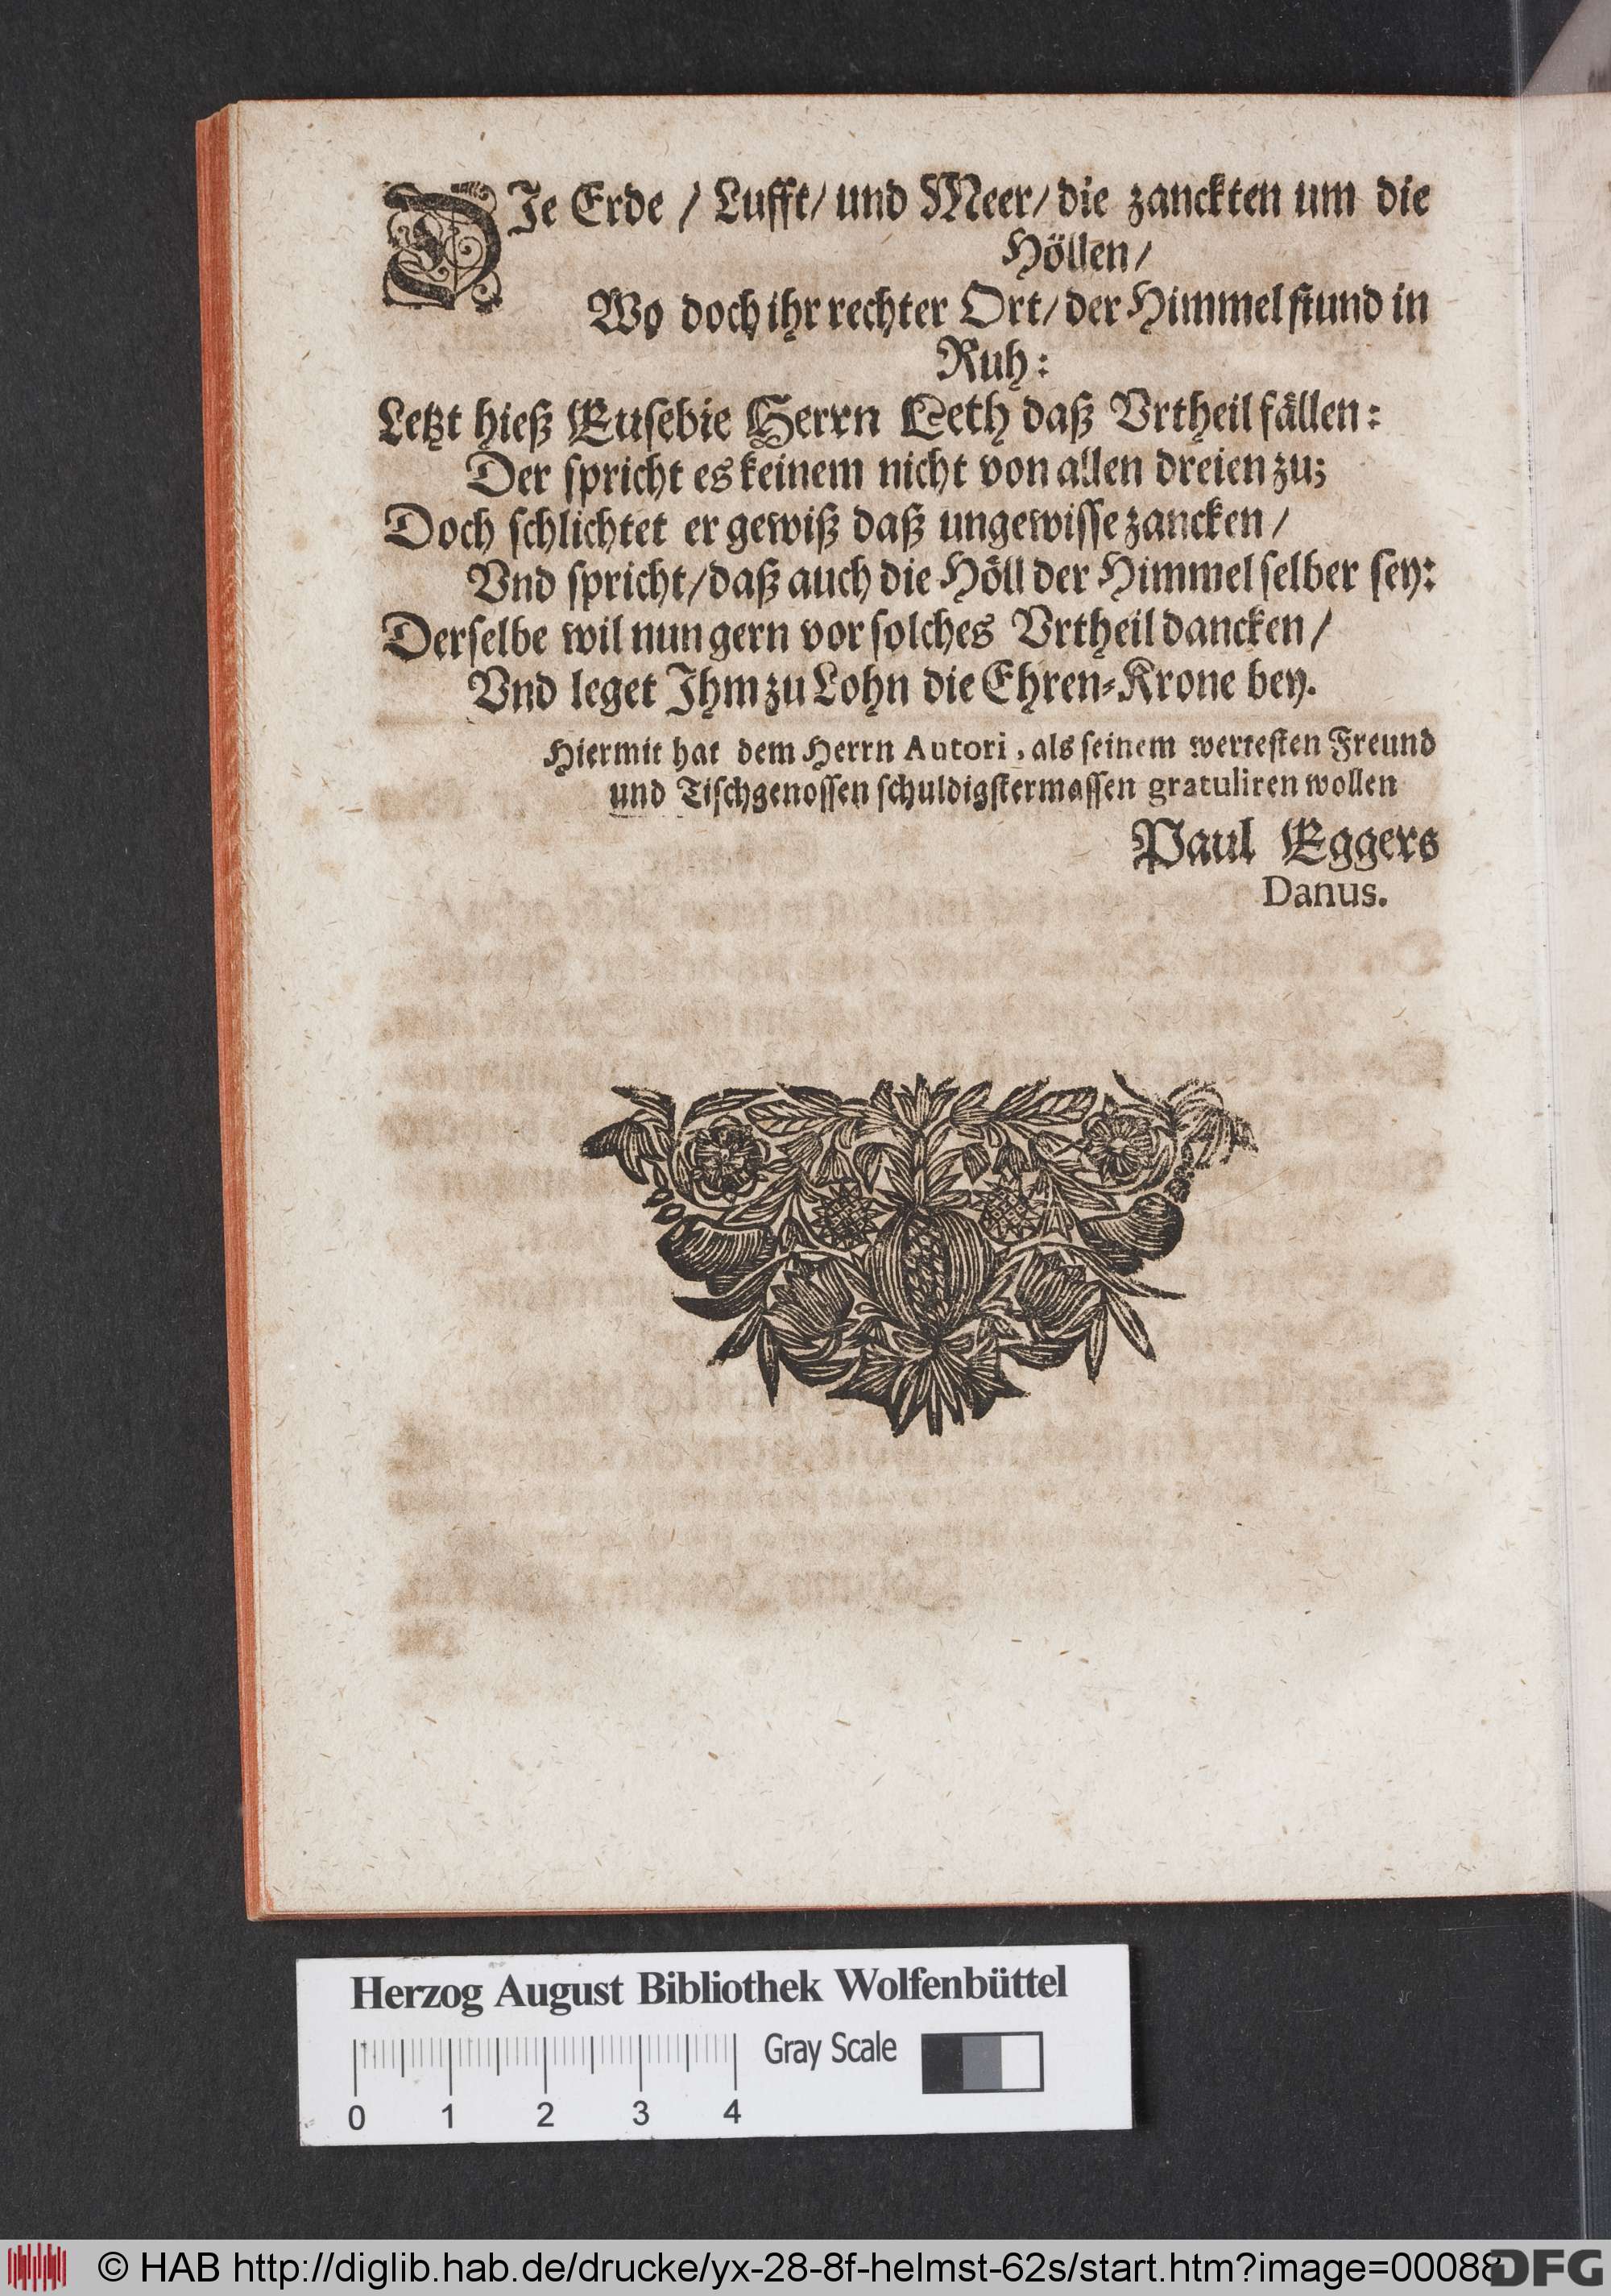 DIe Erde / Lufft / und Meer / die zanckten um die
Höllen /
Wo doch ihr rechter Ort / der Himmel stund in
Ruh:
Letzt hieß Eusebie Herrn Leth daß Vrtheil fällen:
Der spricht es keinem nicht von allen dreien zu;
Doch schlichtet er gewiß daß ungewisse zancken /
Vnd spricht / daß auch die Höll der Himmel selber sey:
Derselbe wil nun gern vor solches Vrtheil dancken /
Vnd leget Ihm zu Lohn die Ehren-Krone bey.
Hiermit hat dem Herrn Autori, als seinem wertesten Freund
und Tischgenossen schuldigstermassen gratuliren wollen
Paul Eggers
Danus.
Herzog August Bibliothek Wolfenbüttel
Gray Scale
0 1 2 3 4
© HAB http://diglib.hab.de/drucke/yx-28-8f-helmst-62s/start.htm?image=00088
DFG